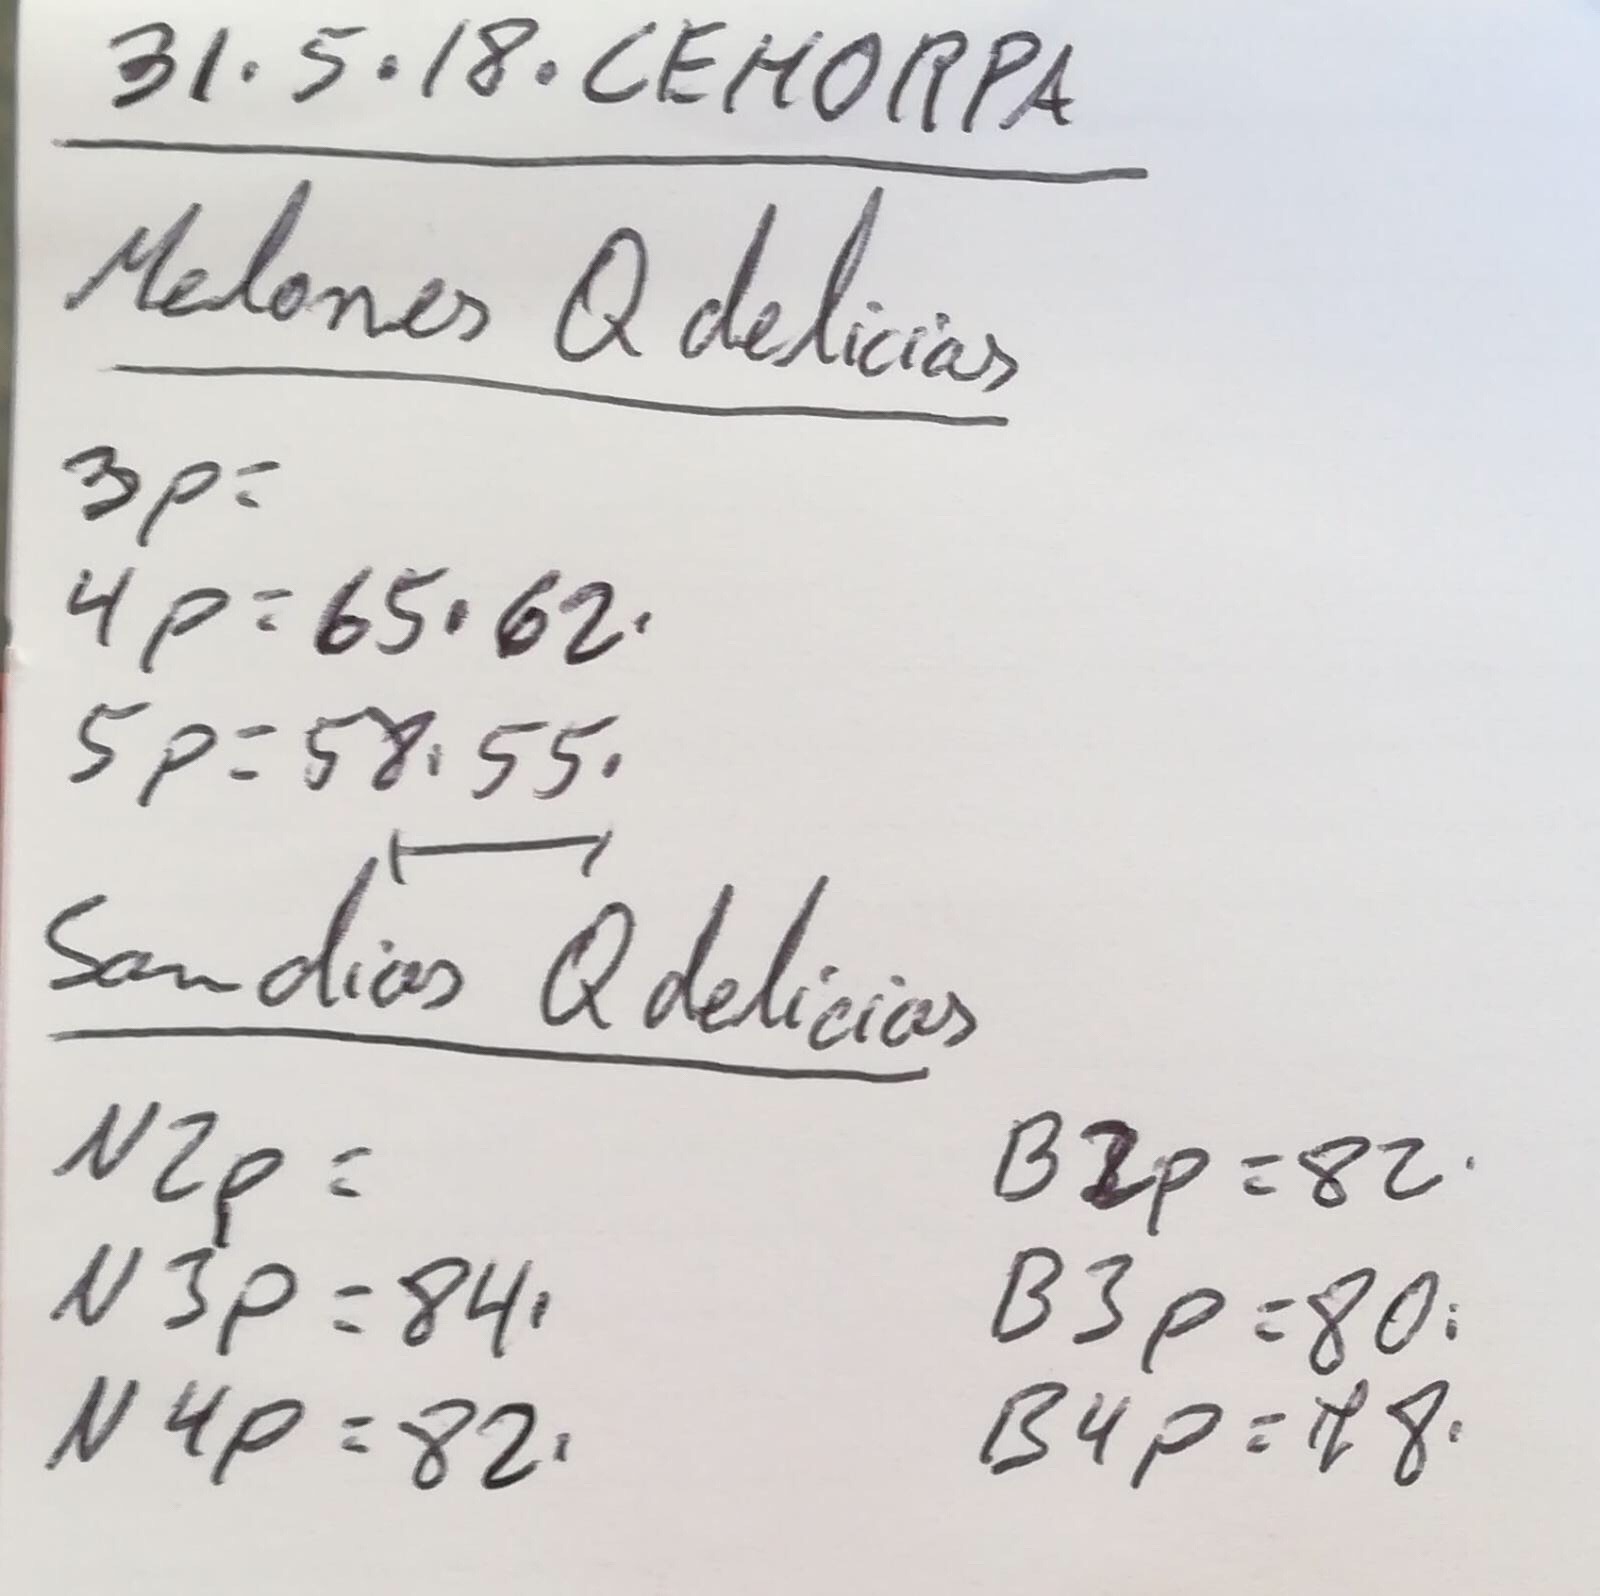 31.5.18. CEHORPA
Melones Q delicias
3p=
4p=65.62.
5p=58.55.
Sandias Q delicias
N2p=
N3p=84.
N4p=82.
B2p=82.
B3p=80.
B4p=78.